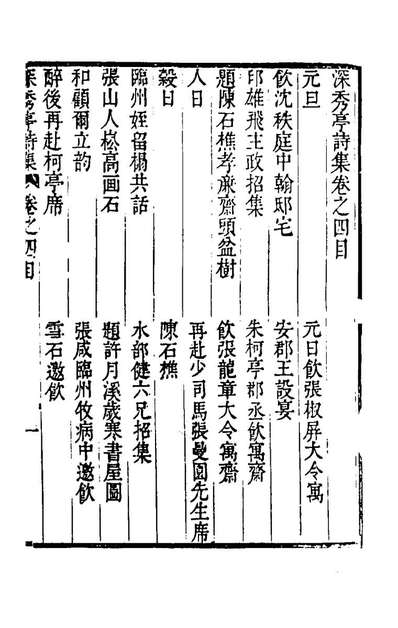 深秀亭詩集卷之四目
元旦
元日飲張椒屏大令寓
飲沈秩庭中翰邸宅
安郡王設宴
邱雄飛主政招集
朱柯亭郡丞飲寓齋
題陳石樵孝廉齋頭盆樹
飲張龍章大令寓齋
人日
再赴少司馬張曼園先生席
穀日
陳石樵
臨州姪留楊共話
水部健六兄招集
張山人崧高画石
題許月溪歲寒書屋圖
和顧爾立韵
張咸臨州牧病中邀飲
醉後再赴柯亭席
雪石邀飲
深秀亭詩集
卷之四目
一